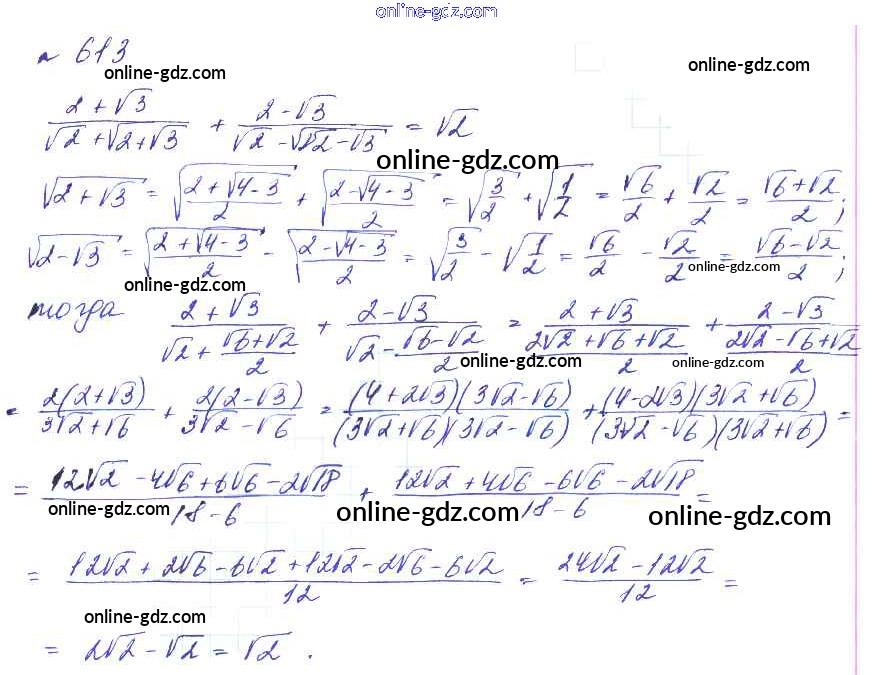 online-gdz.com
№ 613
online-gdz.com
online-gdz.com
(2+√3)/(√2+√(2+√3)) + (2-√3)/(√2-√(2-√3)) = √2
online-gdz.com
√(2+√3) = √((2+√(4-3))/2) + √((2-√(4-3))/2) = √(3/2) + √(1/2) = √6/2 + √2/2 = (√6+√2)/2;
√(2-√3) = √((2+√(4-3))/2) - √((2-√(4-3))/2) = √(3/2) - √(1/2) = √6/2 - √2/2 = (√6-√2)/2;
online-gdz.com
online-gdz.com
тогда (2+√3)/(√2+(√6+√2)/2) + (2-√3)/(√2-(√6-√2)/2) = (2+√3)/((2√2+√6+√2)/2) + (2-√3)/((2√2-√6+√2)/2)
online-gdz.com
online-gdz.com
= 2(2+√3)/(3√2+√6) + 2(2-√3)/(3√2-√6) = (4+2√3)(3√2-√6)/((3√2+√6)(3√2-√6)) + (4-2√3)(3√2+√6)/((3√2-√6)(3√2+√6)) =
= (12√2-4√6+6√6-2√18)/(18-6) + (12√2+4√6-6√6-2√18)/(18-6) =
online-gdz.com
online-gdz.com
online-gdz.com
= (12√2+2√6-6√2+12√2-2√6-6√2)/12 = (24√2-12√2)/12 =
online-gdz.com
= 2√2-√2 = √2.